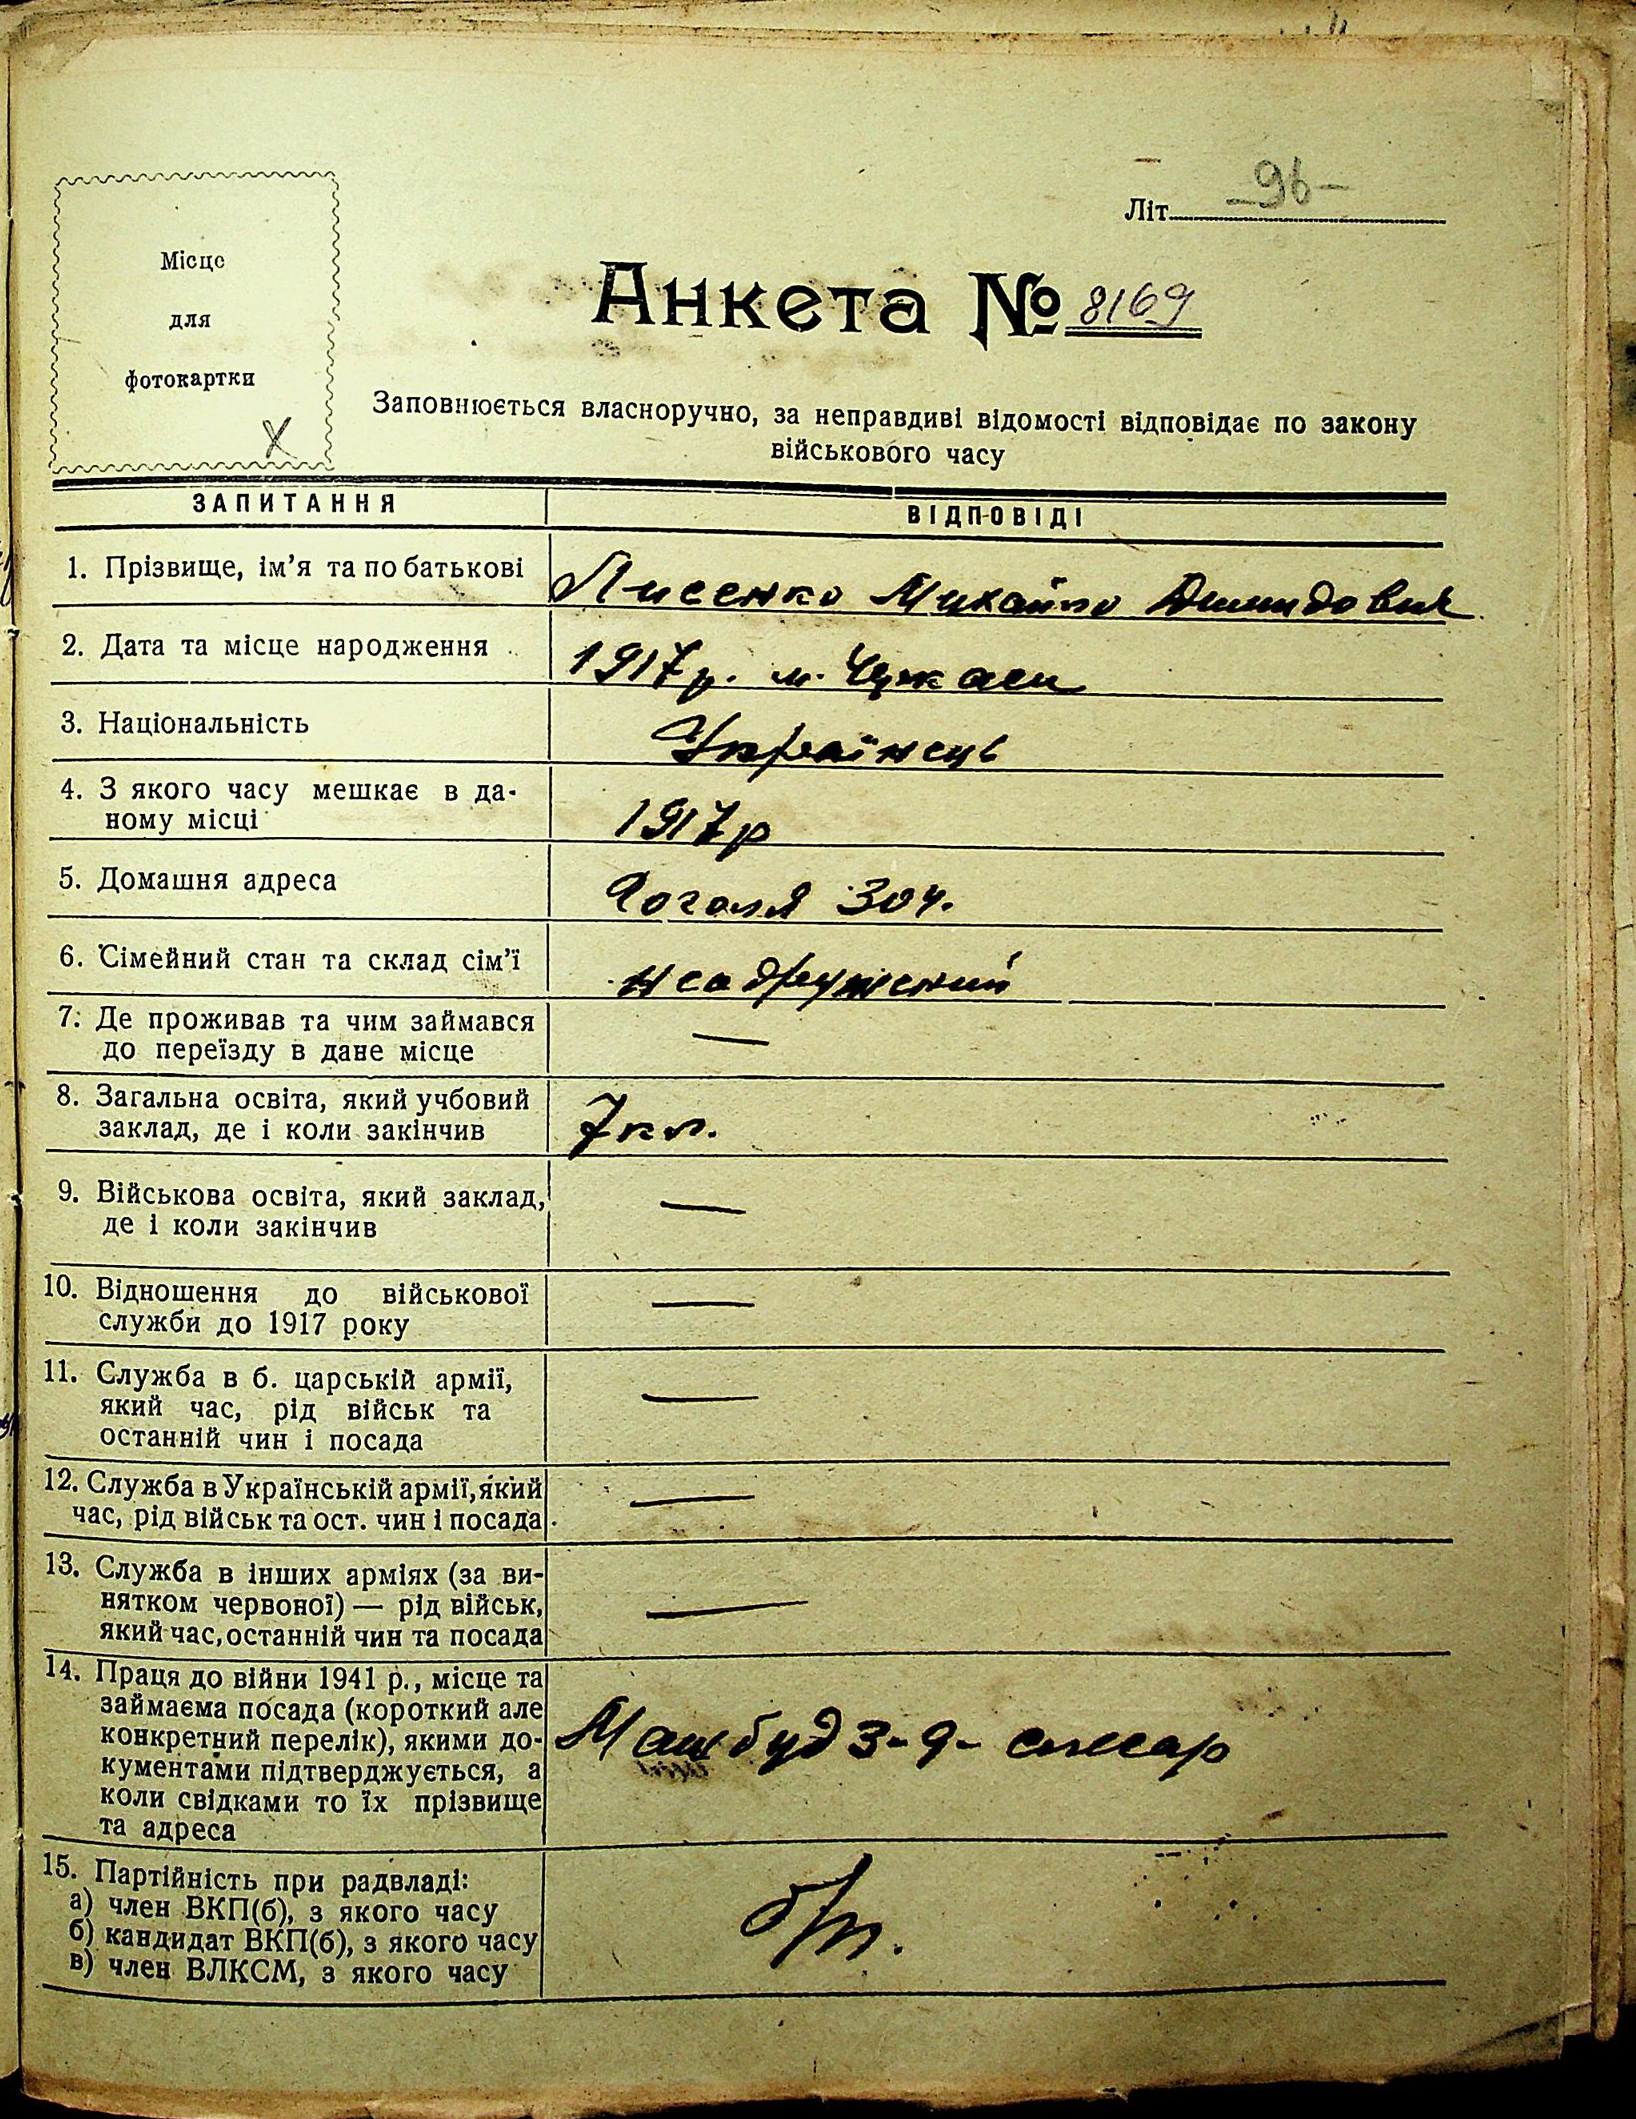 Літ. -96-
Місце
для
фотокартки
Х
Анкета № 8169
Заповнюється власноручно, за неправдиві відомості відповідає по закону
військового часу
ЗАПИТАННЯ
ВІДПОВІДІ
1. Прізвище, ім’я та по батькові
Лисенко Михайло
2. Дата та місце народження
1917р. м. Черкаси
3. Національність
Українець
4. З якого часу мешкає в да-
ному місці
1917р
5. Домашня адреса
Гоголя 304.
6. Сімейний стан та склад сім’ї
неодружений
7. Де проживав та чим займався
до переїзду в дане місце
—
8. Загальна освіта, який учбовий
заклад, де і коли закінчив
7кл.
9. Військова освіта, який заклад,
де і коли закінчив
—
10. Відношення до військової
служби до 1917 року
—
11. Служба в б. царській армії,
який час, рід військ та
останній чин і посада
—
12. Служба в Українській армії, який
час, рід військ та ост. чин і посада
—
13. Служба в інших арміях (за ви-
нятком червоної) — рід військ,
який час, останній чин та посада
—
14. Праця до війни 1941 р., місце та
займаєма посада (короткий але
конкретний перелік), якими до-
кументами підтверджується, а
коли свідками то їх прізвище
та адреса
Машбуд з-д- слюсар
15. Партійність при радвладі:
а) член ВКП(б), з якого часу
б) кандидат ВКП(б), з якого часу
в) член ВЛКСМ, з якого часу
б/п.